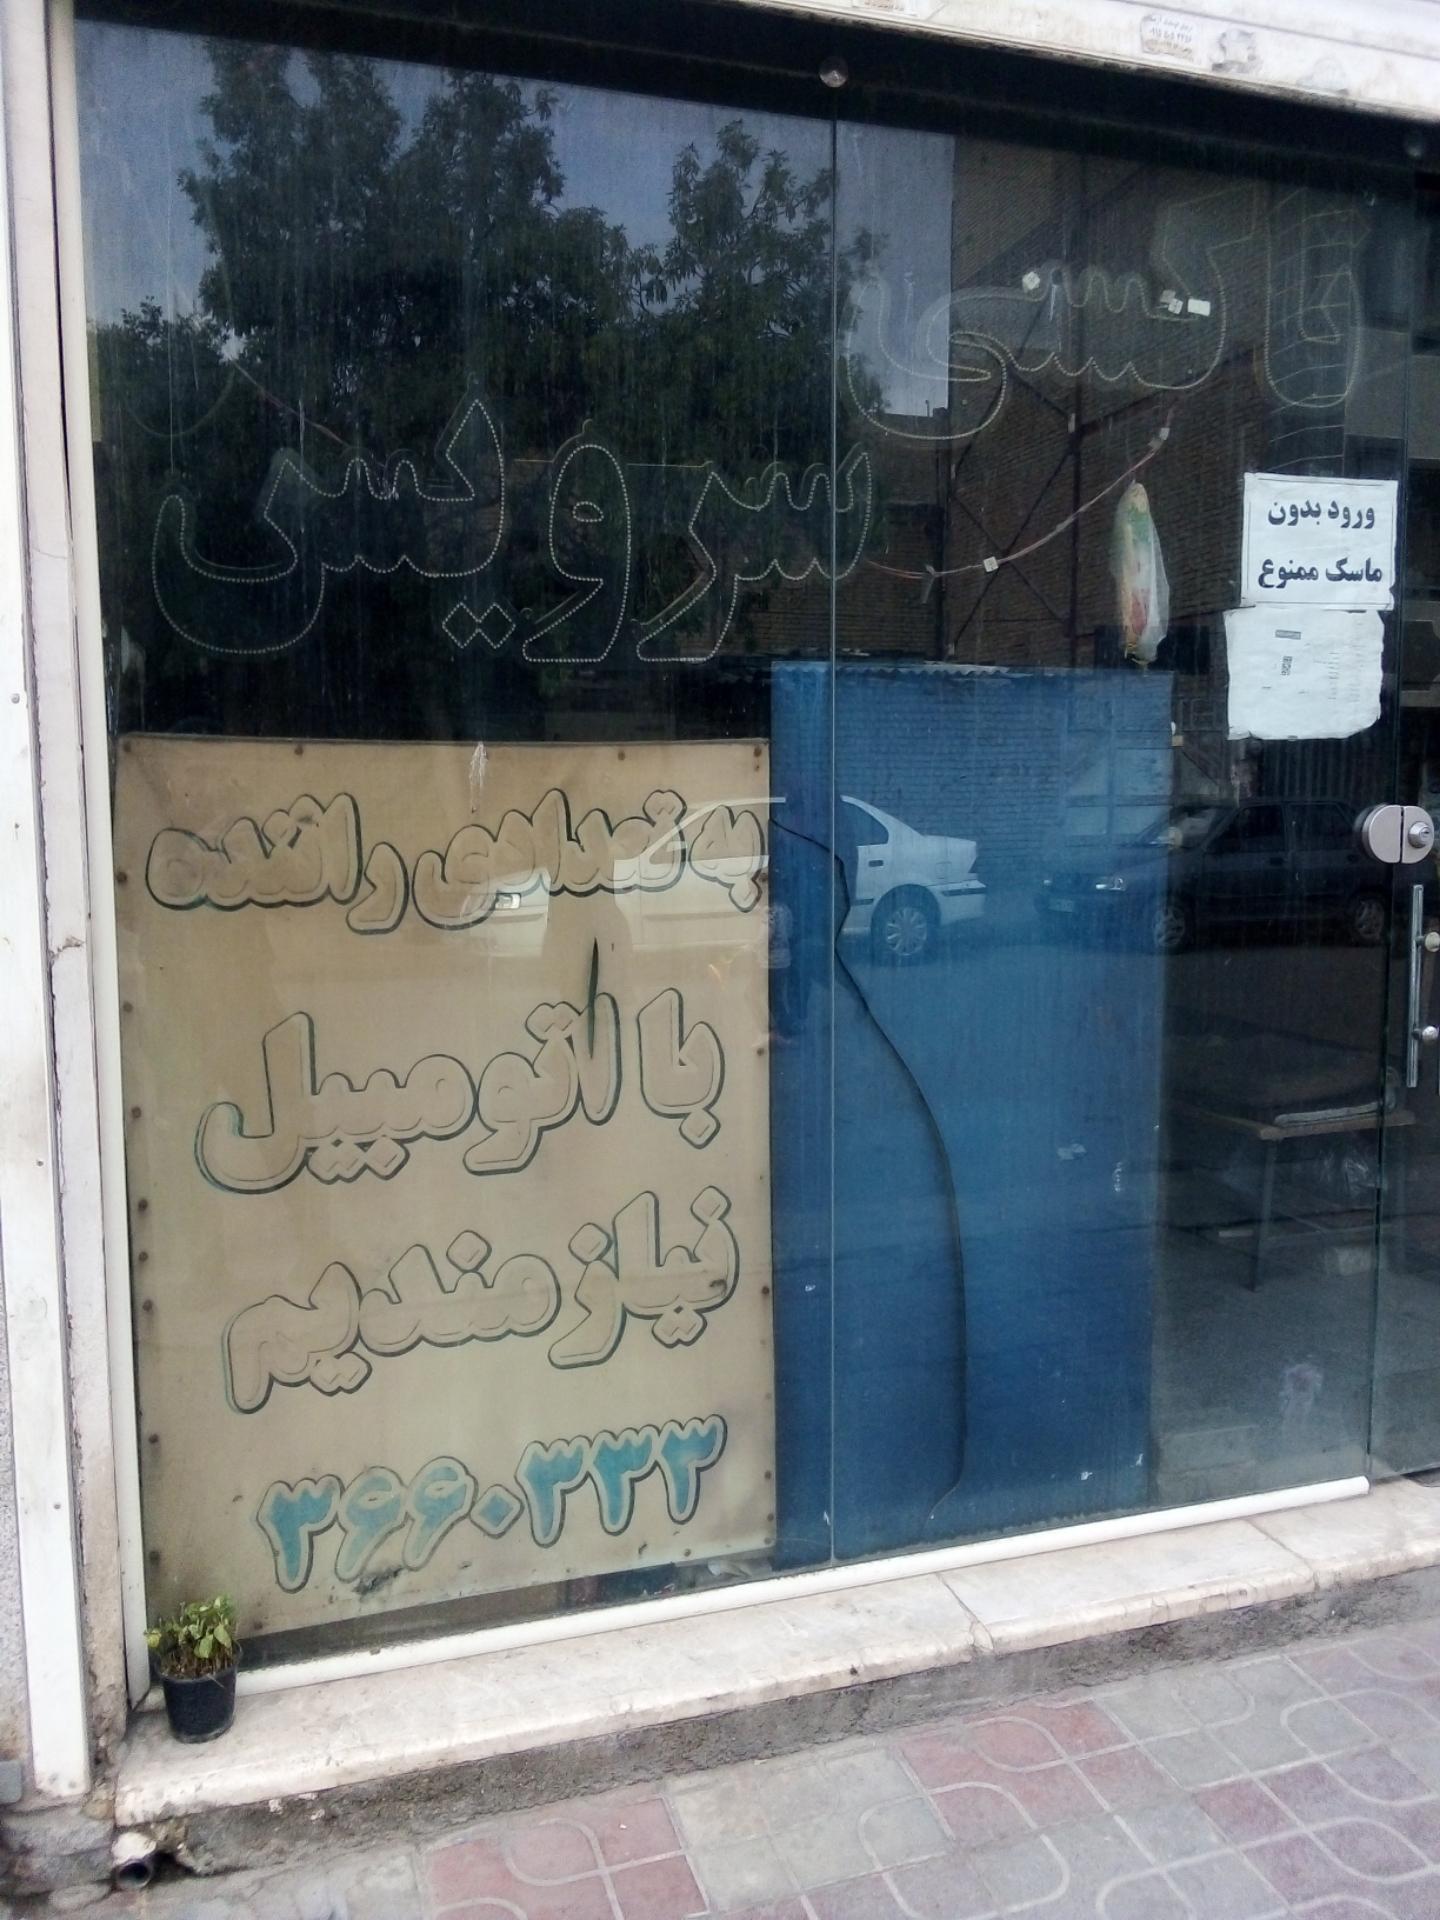 تاکسی
سرویس
ورود بدون
ماسک ممنوع
به تعدادی راننده
با اتومبیل
نیازمندیم
۳۶۶۰۳۳۳